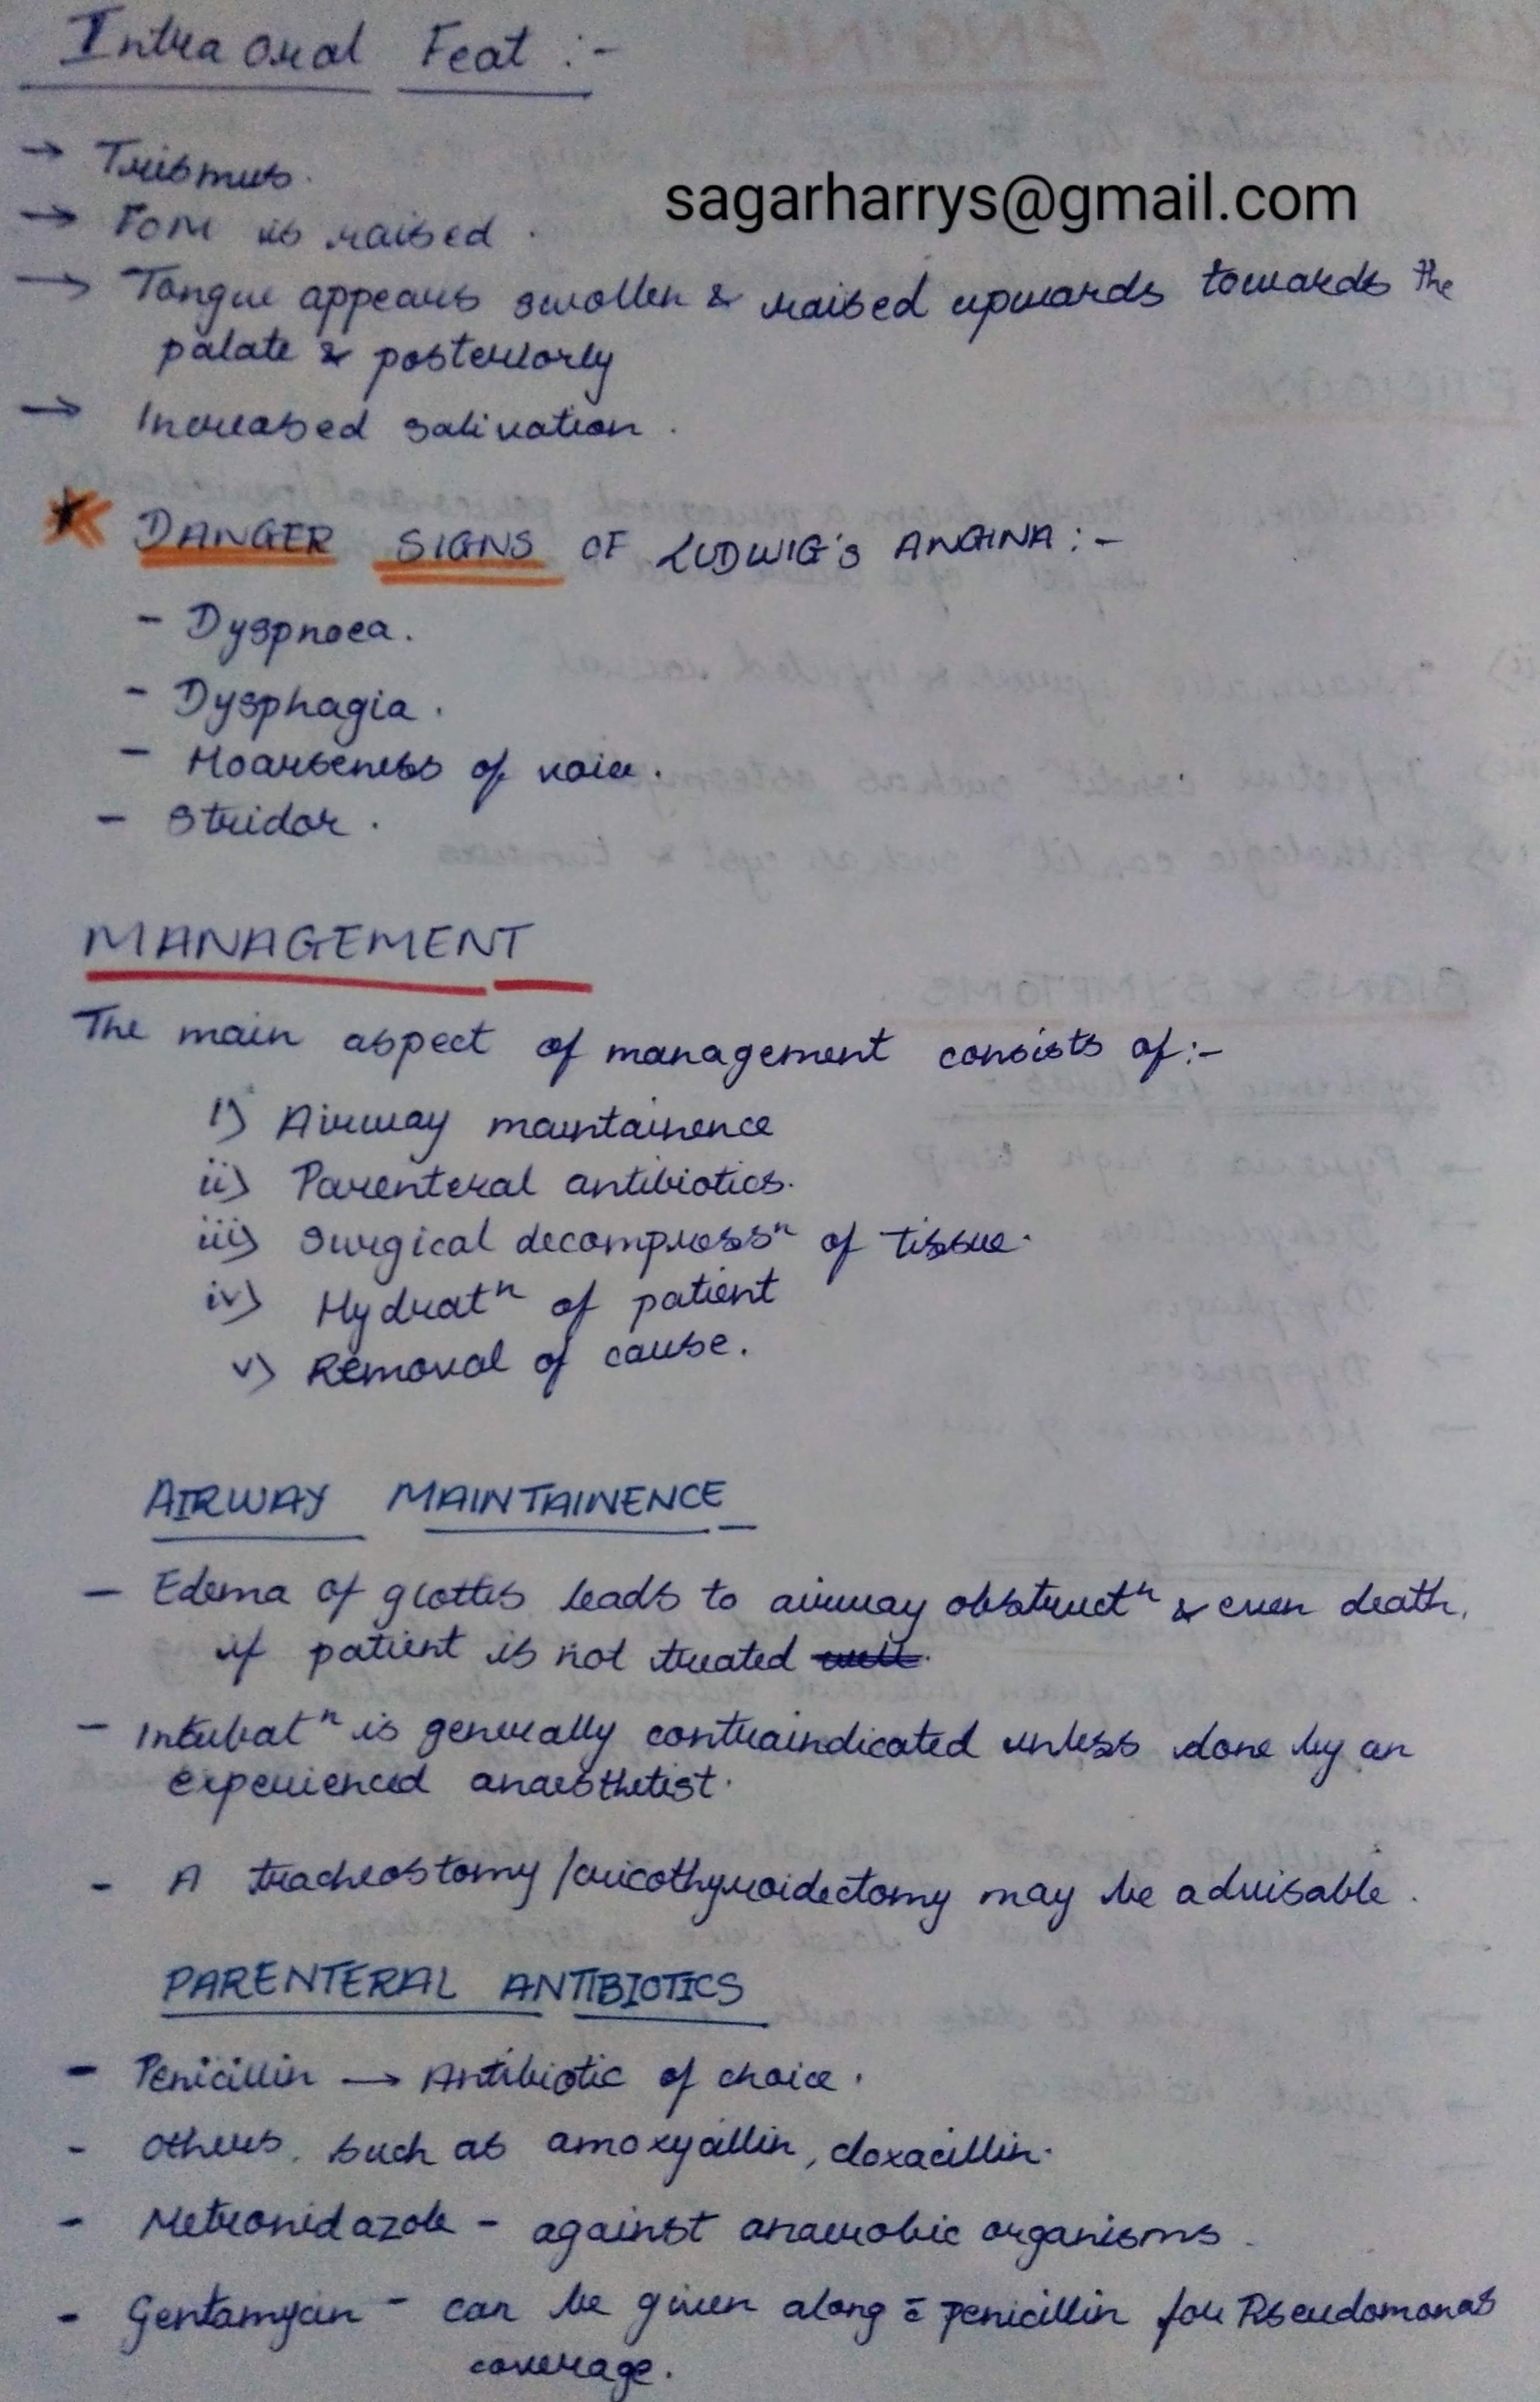 Intra oral Feat :-
→ Trismus.
sagarharrys@gmail.com
→ FOM is raised.
→ Tongue appears swollen & raised upwards towards the
palate & posteriorly
→ Increased salivation.
* DANGER SIGNS OF LUDWIG's ANGINA :-
- Dyspnoea.
- Dysphagia.
- Hoarseness of voice.
- Stridor.
MANAGEMENT
The main aspect of management consists of :-
i) Airway maintainence
ii) Parenteral antibiotics.
iii) Surgical decompressⁿ of tissue.
iv) Hydratⁿ of patient
v) Removal of cause.
AIRWAY MAINTAINENCE
- Edema of glottis leads to airway obstructⁿ & even death,
if patient is not treated well.
- Intubatⁿ is generally contraindicated unless done by an
experienced anaesthetist.
- A tracheostomy/cricothyroidectomy may be advisable.
PARENTERAL ANTIBIOTICS
- Penicillin → Antibiotic of choice.
- Others, such as amoxycillin, cloxacillin.
- Metronidazole - against anaerobic organisms.
- Gentamycin - can be given along c̄ penicillin for Pseudomonas
coverage.